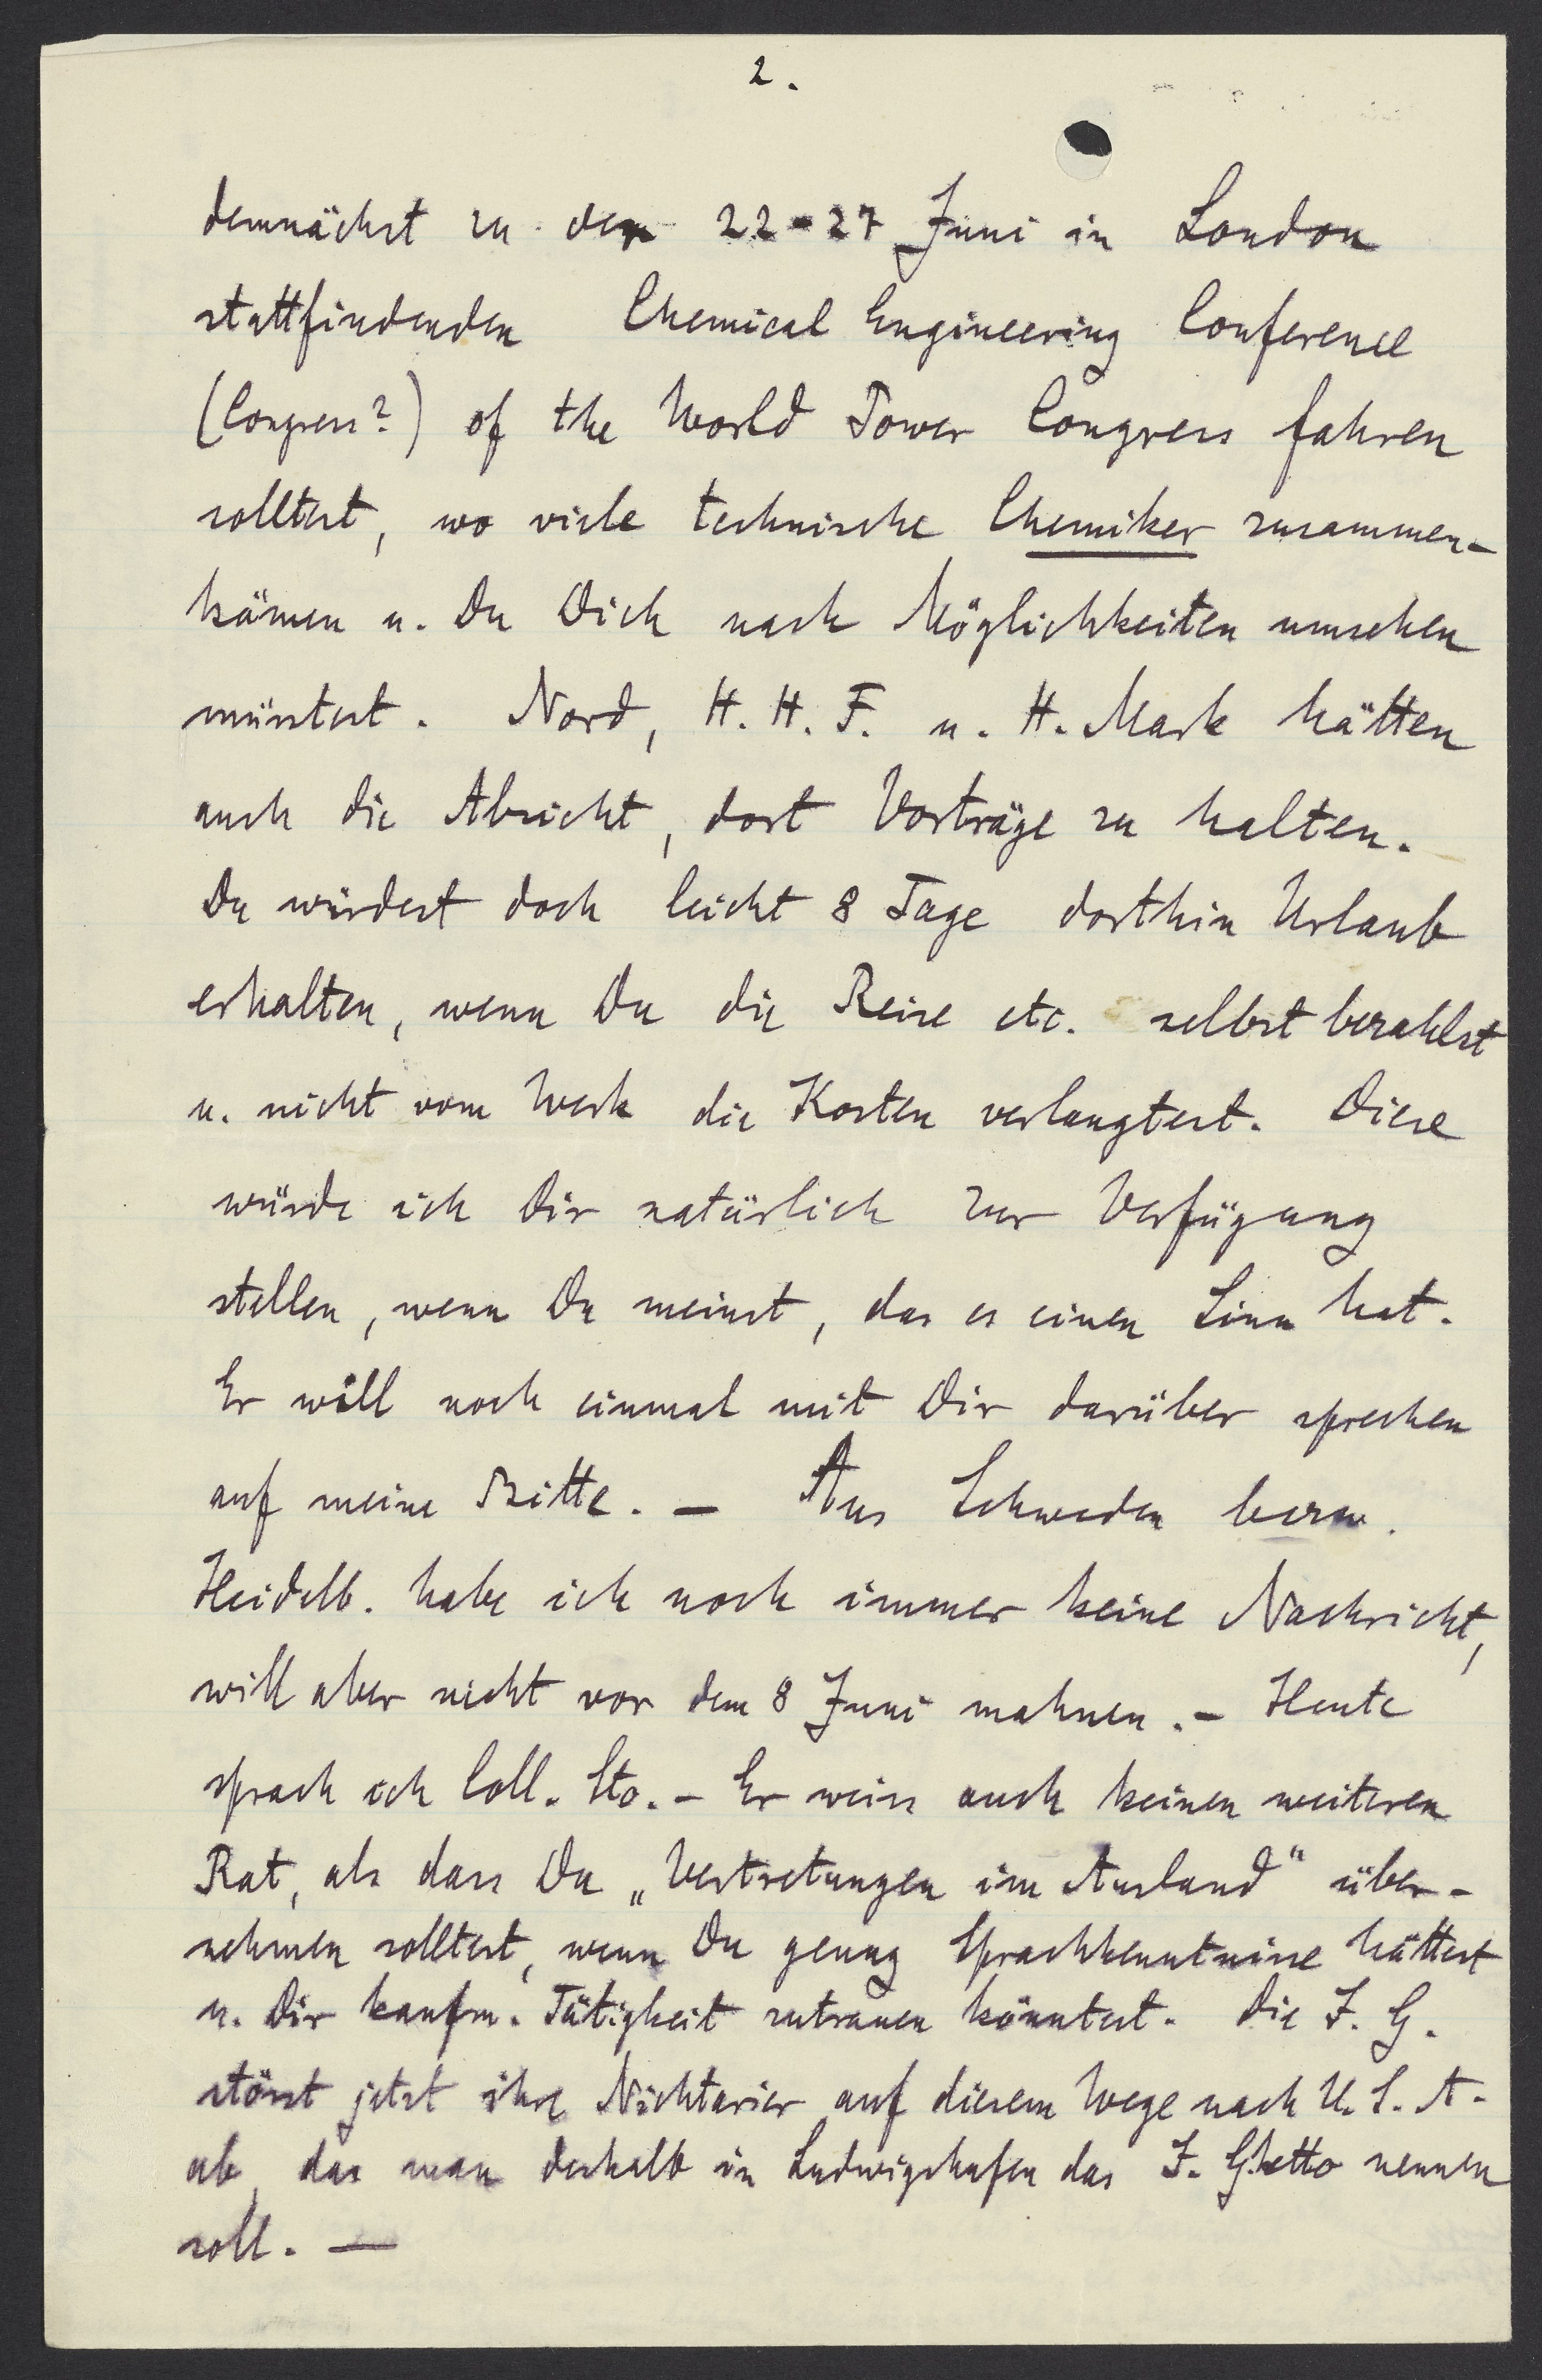 2.
demnächst zu der 22-27 Juni in London
stattfindenden Chemical Engineering Conference
(Congress?) of the World Power Congress fahren
solltest, wo viele technische Chemiker zusammen-
kämen u. Du Dich nach Möglichkeiten umsehen
müsstest. Nord, H. H. F. u. H. Mark hätten
auch die Absicht, dort Vorträge zu halten.
Du würdest doch leicht 8 Tage dorthin Urlaub
erhalten, wenn Du die Reise etc. selbst bezahlst
u. nicht vom Werk die Kosten verlangtest. Diese
würde ich Dir natürlich zur Verfügung
stellen, wenn Du meinst, das es einen Sinn hat.
Er will noch einmal mit Dir darüber sprechen
auf meine Bitte. — Aus Schweden bezw.
Heidelb. habe ich noch immer keine Nachricht,
will aber nicht vor dem 8 Juni mahnen. - Heute
sprach ich Coll. Sto. - Er weiss auch keinen weiteren
Rat, als dass Du „Vertretungen im Ausland" über-
nehmen solltest, wenn Du genug Sprachkenntnisse hättest
u. Dir kaufm. Tätigkeit zutrauen könntest. Die I. G.
stösst jetzt ihre Nichtarier auf diesem Wege nach U. S. A.
ab, das man deshalb in Ludwigshafen das I. Ghetto nennen
soll. —